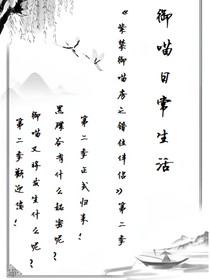 御喵日常生活
《紫禁御喵房之错位伴侣》第二季
第二季正式归来！
黑曜谷有什么秘密呢？
御喵又将发生什么呢？
第二季歡迎您！